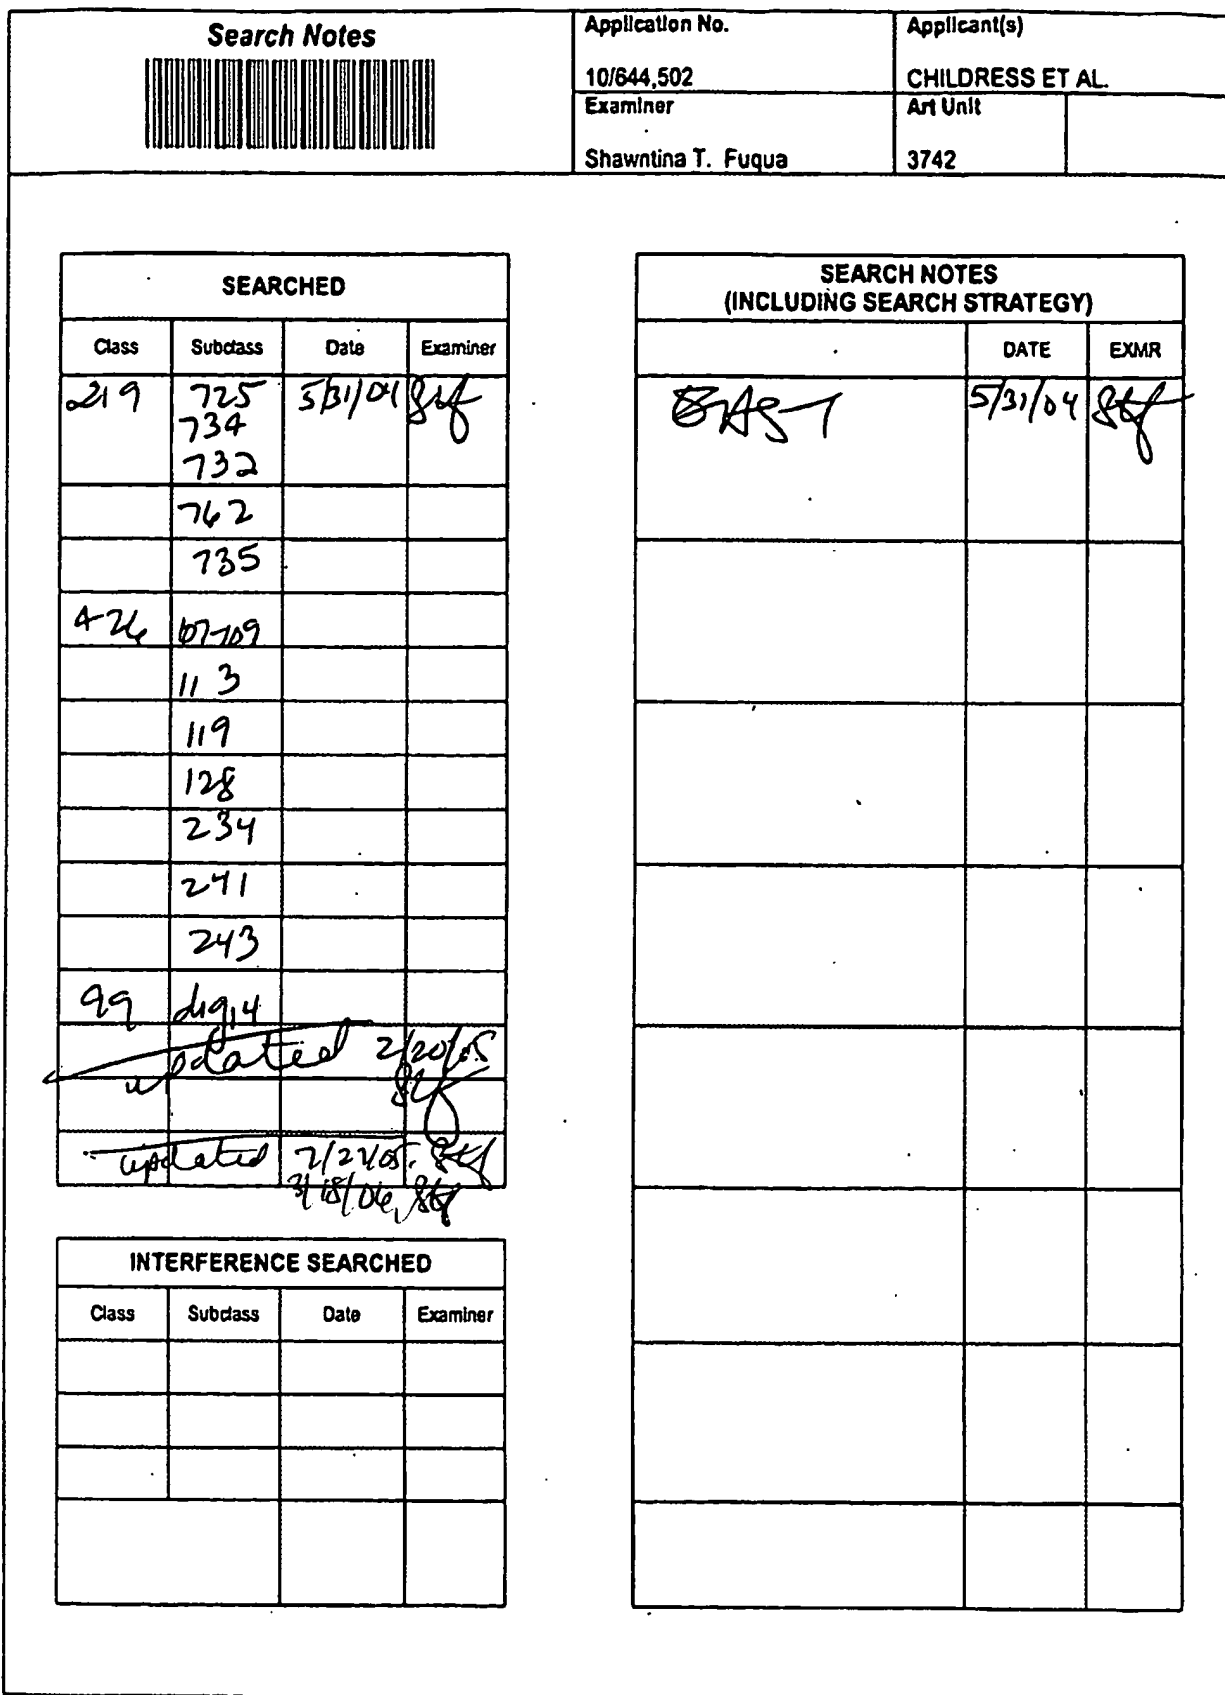 Search Notes
Application No.
10/644,502
Applicant(s)
CHILDRESS ET AL.
Examiner
Shawntina T. Fuqua
Art Unit
3742
SEARCHED
Class Subclass Date Examiner
219 725 5/31/04 stf
734
732
762
735
426 107-109
113
119
128
234
241
243
99 dig14
updated 2/20/05
stf
updated 2/22/05 stf
3/18/06 stf
INTERFERENCE SEARCHED
Class Subclass Date Examiner
SEARCH NOTES
(INCLUDING SEARCH STRATEGY)
DATE EXMR
EAST 5/31/04 stf